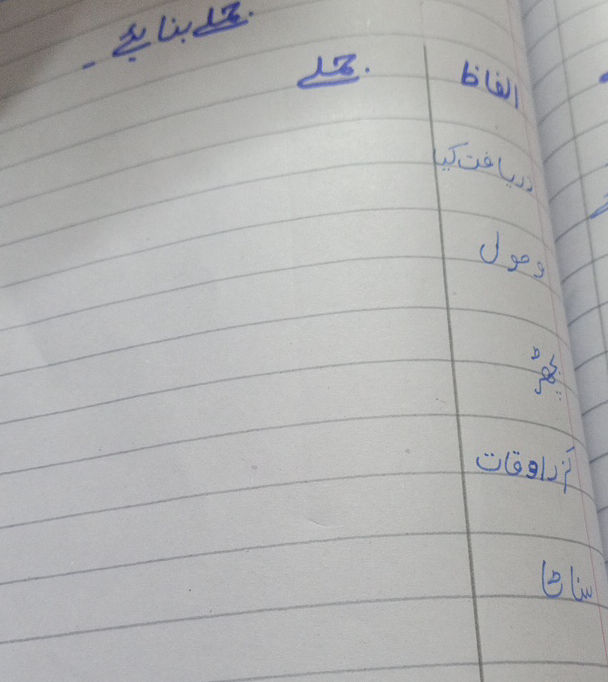 جملے بنائیے۔
الفاظ جملے
دریافت کیا
وصول
کیچڑ
گزر اوقات
سناٹا